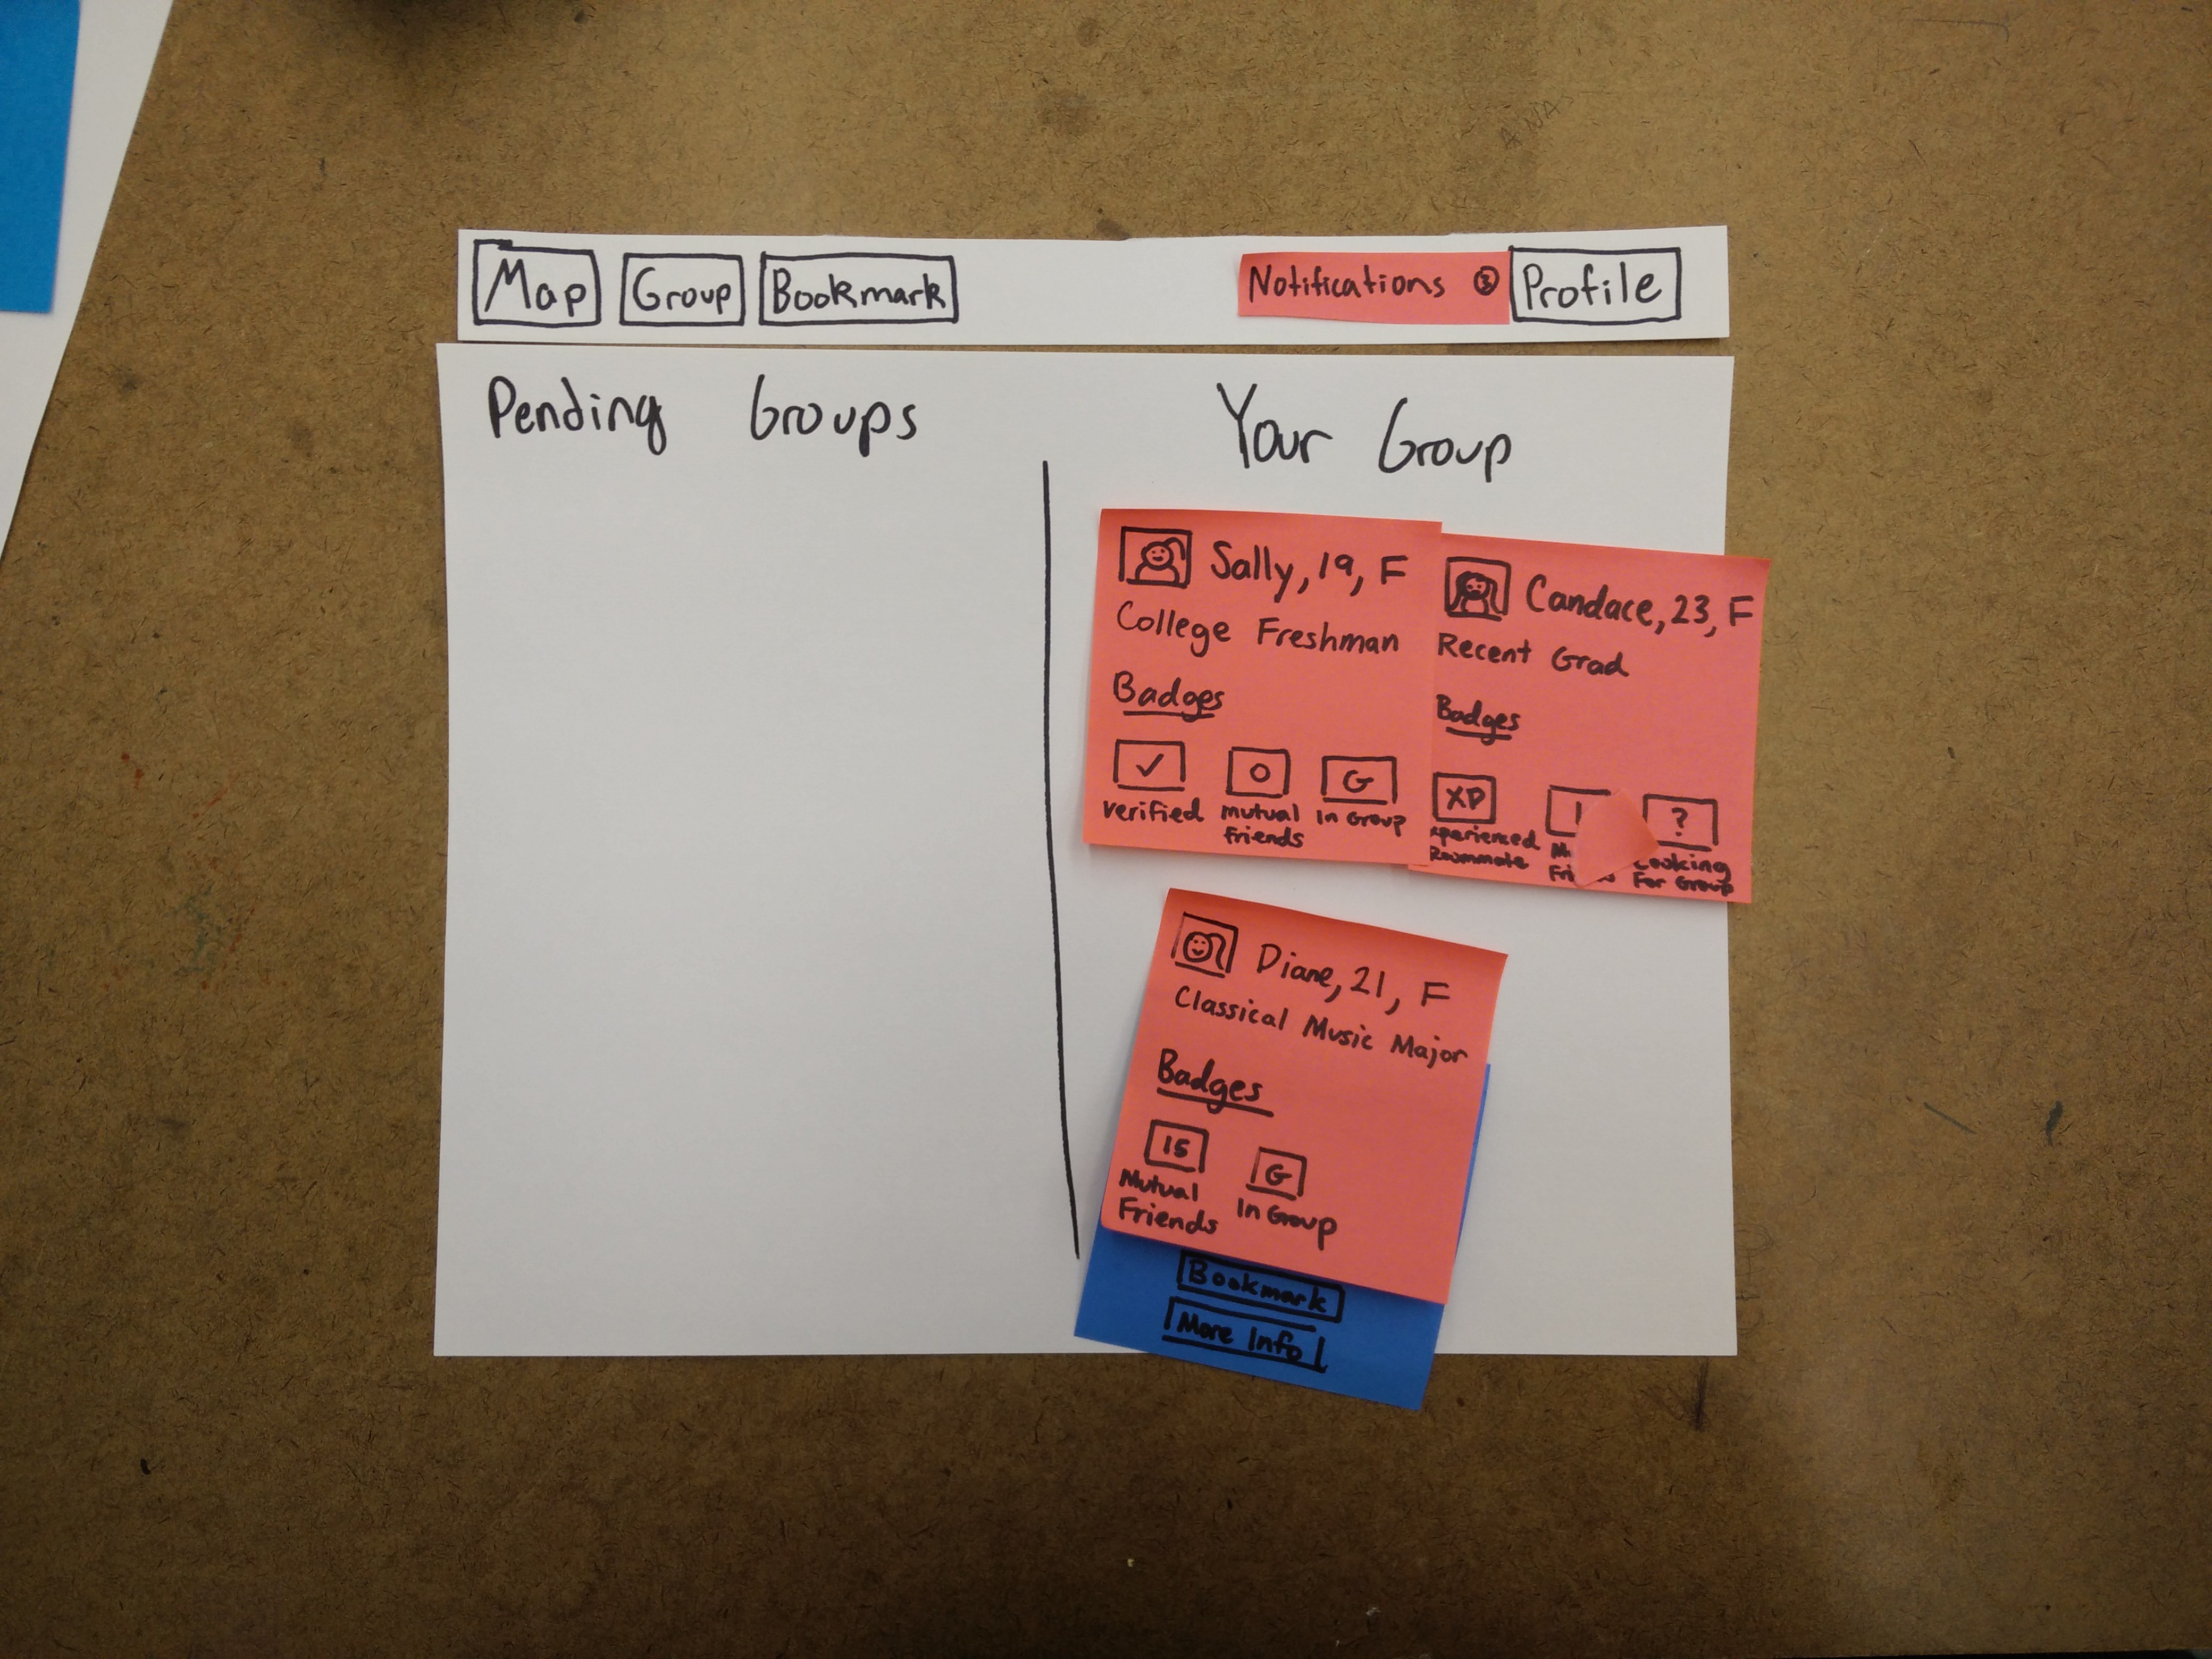 Map Group Bookmark Notifications 3 Profile
Pending Groups
Your Group
Sally, 19, F
College Freshman
Badges
✓ O G
verified mutual friends In Group
Candace, 23, F
Recent Grad
Badges
XP ?
Roommate
Looking
For Group
Diane, 21, F
Classical Music Major
Badges
15 G
Mutual In Group
Friends
Bookmark
More Info